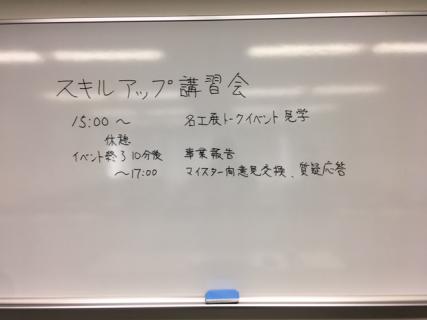 スキルアップ講習会
15:00～ 名工展トークイベント見学
休憩
イベント終了10分後 事業報告
～17:00 マイスター向意見交換、質疑応答